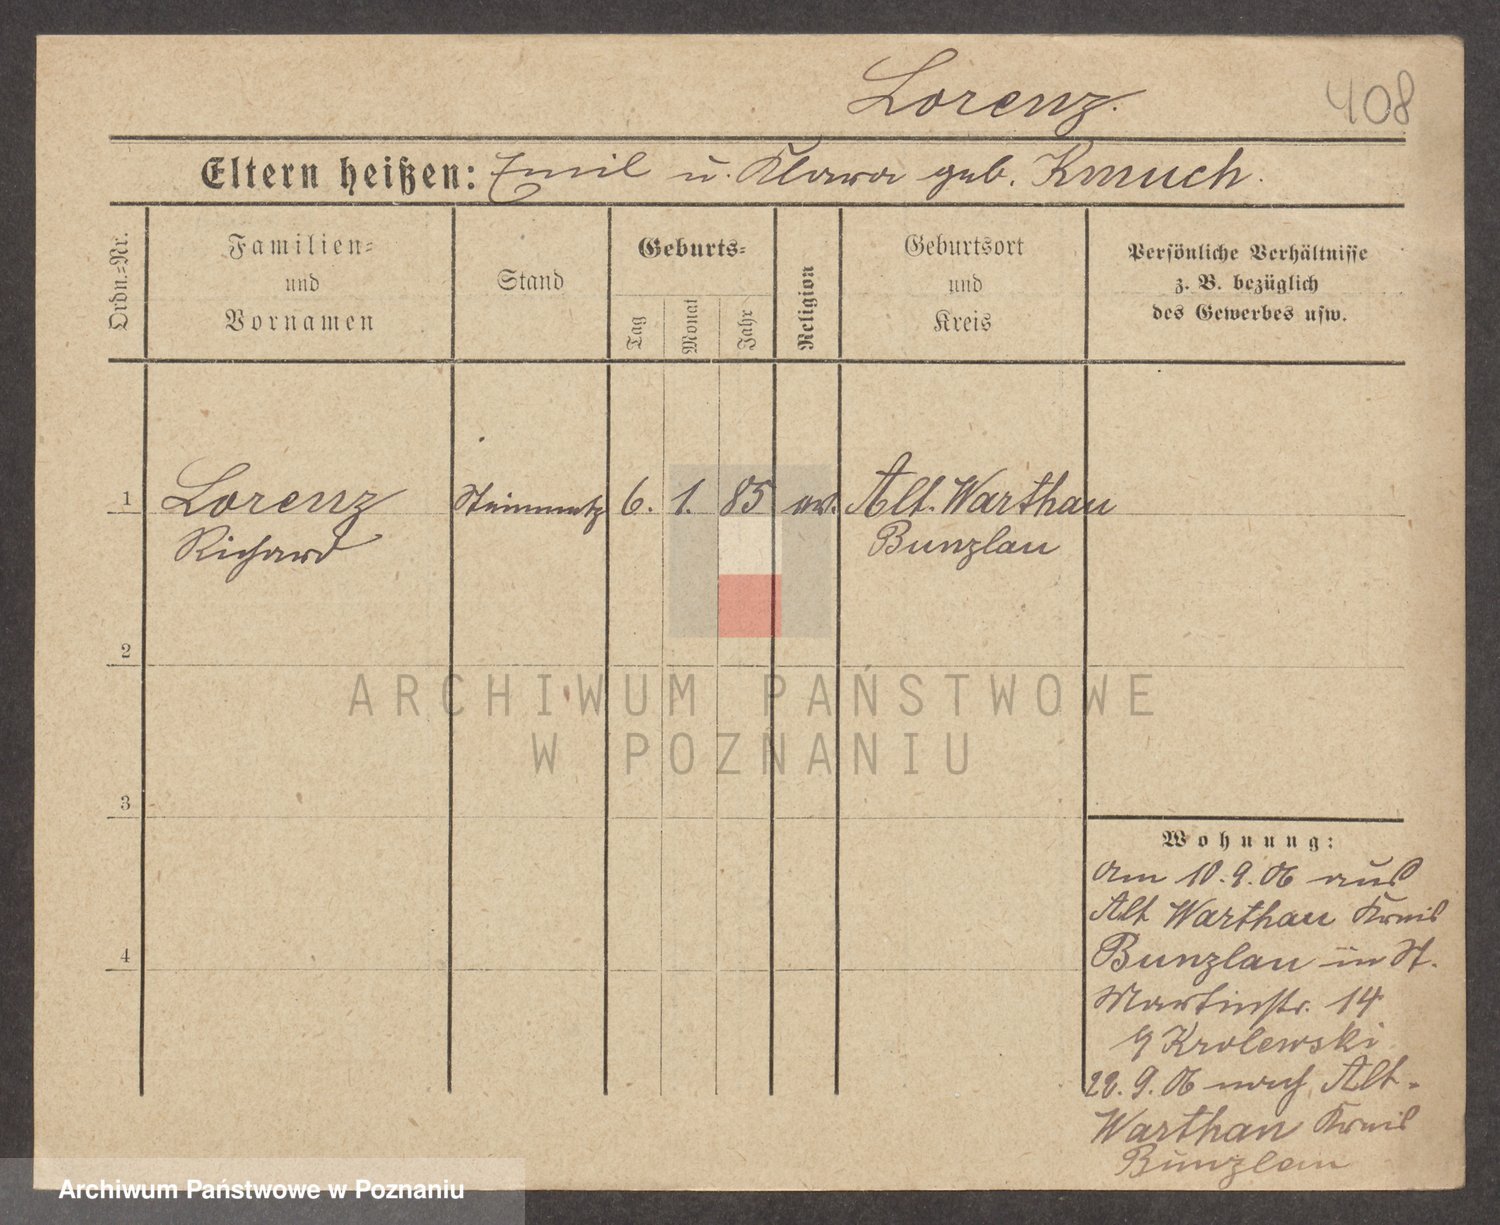 Lorenz.
408
Eltern heißen: Emil u. Klara geb. Kmuch.
Ordn.=Nr.
Familien=
und
Vornamen
Stand
Geburts=
Tag
Monat
Jahr
Religion
Geburtsort
und
Kreis
Persönliche Verhältnisse
z. B. bezüglich
des Gewerbes usw.
1 Lorenz Steinmetz 6. 1. 85 ev. Alt. Warthau
Richard Bunzlau
2
ARCHIWUM PAŃSTWOWE
W POZNANIU
3
Wohnung:
am 10.9.06 aus
Alt Warthau Kreis
Bunzlau in St.
4
Martinstr. 14
Krolewski
22.9.06 nach Alt-
Warthau Kreis
Bunzlau
Archiwum Państwowe w Poznaniu